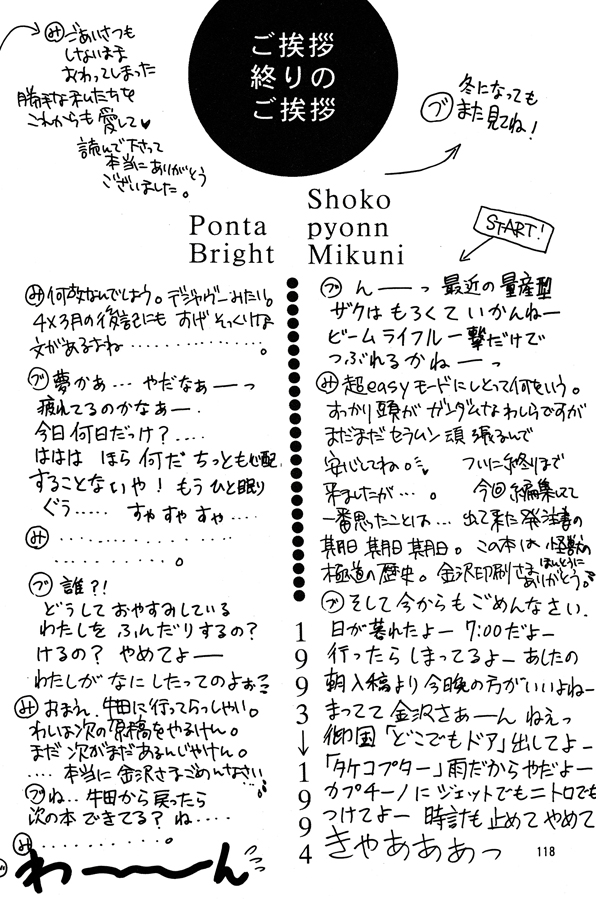 ご挨拶
終りの
ご挨拶
Shoko
pyonn
Mikuni
Ponta
Bright
START!
ブ んーーっ 最近の量産型
ザクは もろくて いかんねー
ビームライフル一撃だけで
つぶれるかねーーっ
み 超easyモードにしとって何をいう。
すっかり頭が ガンダムなわしらですが
まだまだセラムン頑張るんで
安心してね。 ついに終りまで
来ましたが…。 今回編集してて
一番思ったことは… 出て来た発注書の
期日 期日 期日。この本は 怪獣の
極道の歴史。金沢印刷さま ほんとうに
ありがとう。
ブ そして今からもごめんなさい.
日が暮れたよー 7:00だよー
行ったら しまってるよー あしたの
朝入稿より今晩の方がいいよねー
まってて 金沢さぁーん ねえっ
御国「どこでもドア」出してよー
「タケコプター」雨だからやだよー
カプチーノに ジェットでもニトロでも
つけてよー 時計も止めて やめて
きゃあああっ
1993→1994
み 何故なんでしょう。デジャヴーみたい。
4×3月の後記にも すげ そっくりな
文があるよね……………。
ブ 夢かあ… やだなぁーーっ
疲れてるのかなぁー.
今日何日だっけ?….
ははは ほら 何だ ちっとも心配
することないや! もう ひと眠り
ぐう…‥ すやすやすや….
み ………………
………………。
ブ 誰?!
どうして おやすみしている
わたしを ふんだりするの?
けるの? やめてよーー
わたしが なにしたってのよぉ
み おまえ、牛田に行ってらっしゃい。
わしは次の原稿をやるけん。
まだ 次がまだあるんじゃけん。
…. 本当に 金沢さまごめんなさい
ブ ね‥牛田から戻ったら
次の本 できてる? ね….
み ………………。
ブ わーーーん
み ごあいさつも
しないまま
おわってしまった
勝手な私たちを
これからも 愛して♥
読んで下さって
本当にありがとう
ございました。
ブ 冬になっても
また見てね!
118